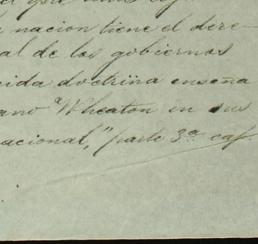 nacion tiene el dere-
al de los gobiernos
cida doctrina enseña
ano Wheaton en sus
nacional," parte 3ª cap.